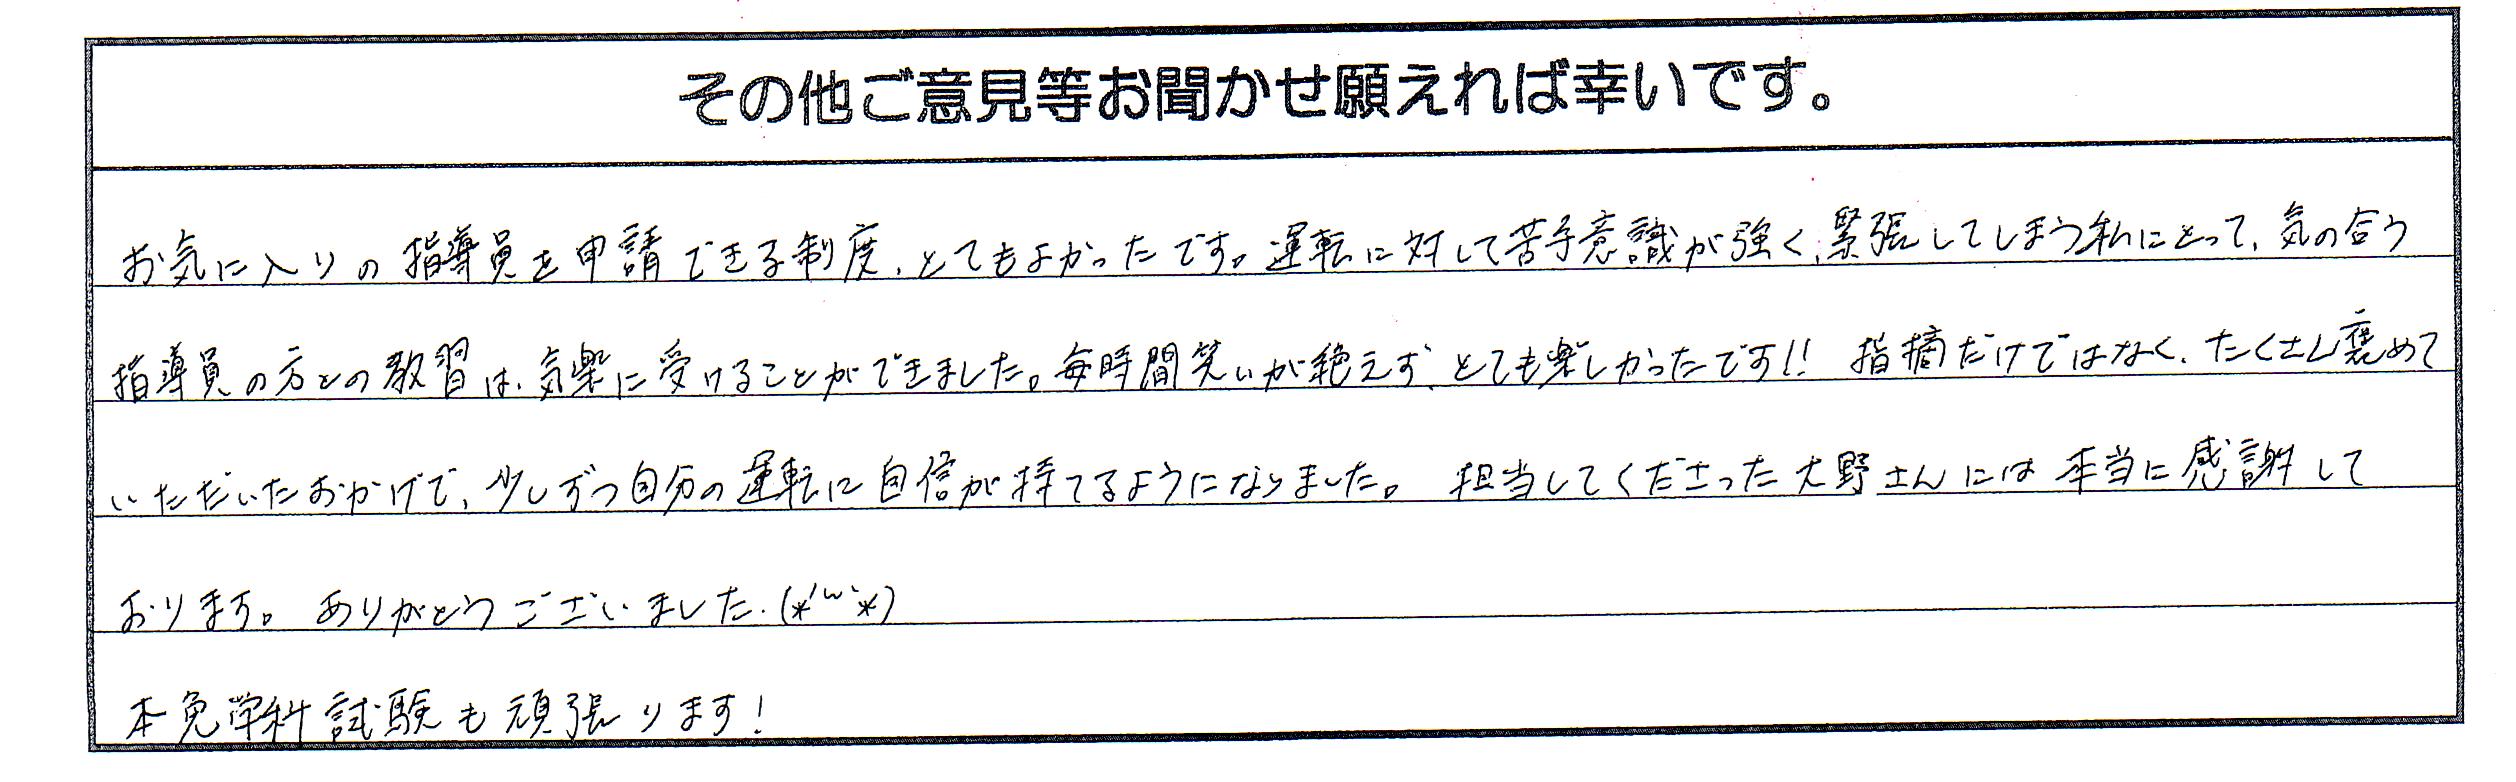 その他ご意見等お聞かせ願えれば幸いです。
お気に入りの指導員を申請できる制度、とてもよかったです。運転に対して苦手意識が強く、緊張してしまう私にとって、気の合う
指導員の方との教習は、気楽に受けることができました。毎時間笑いが絶えず、とても楽しかったです!! 指摘だけではなく、たくさん褒めて
いただいたおかげで、少しずつ自分の運転に自信が持てるようになりました。 担当してくださった大野さんには本当に感謝して
おります。 ありがとうございました.(*´˘`*)
本免学科試験も頑張ります!